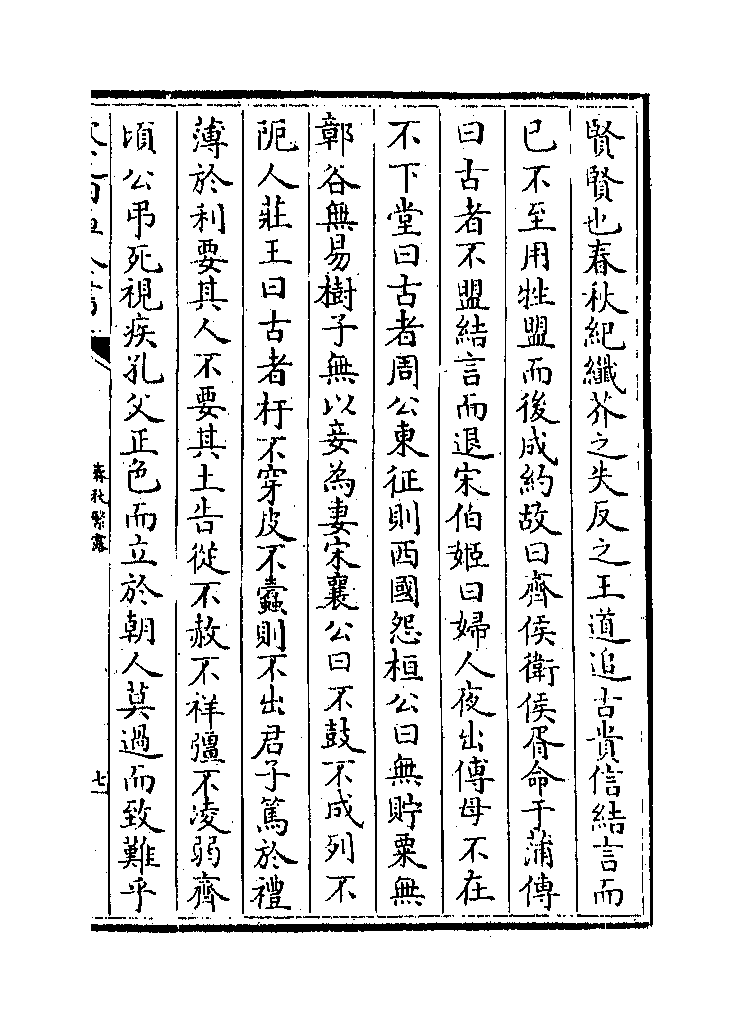 賢賢也春秋紀纖芥之失反之王道追古貴信結言而
已不至用牲盟而後成約故曰齊侯衛侯胥命于蒲傳
曰古者不盟結言而退宋伯姬曰婦人夜出傅母不在
不下堂曰古者周公東征則西國怨桓公曰無貯粟無
鄣谷無易樹子無以妾為妻宋襄公曰不鼓不成列不
阨人莊王曰古者杅不穿皮不蠹則不出君子篤於禮
薄於利要其人不要其土告從不赦不祥彊不凌弱齊
頃公弔死視疾孔父正色而立於朝人莫過而致難乎
春秋繁露
七